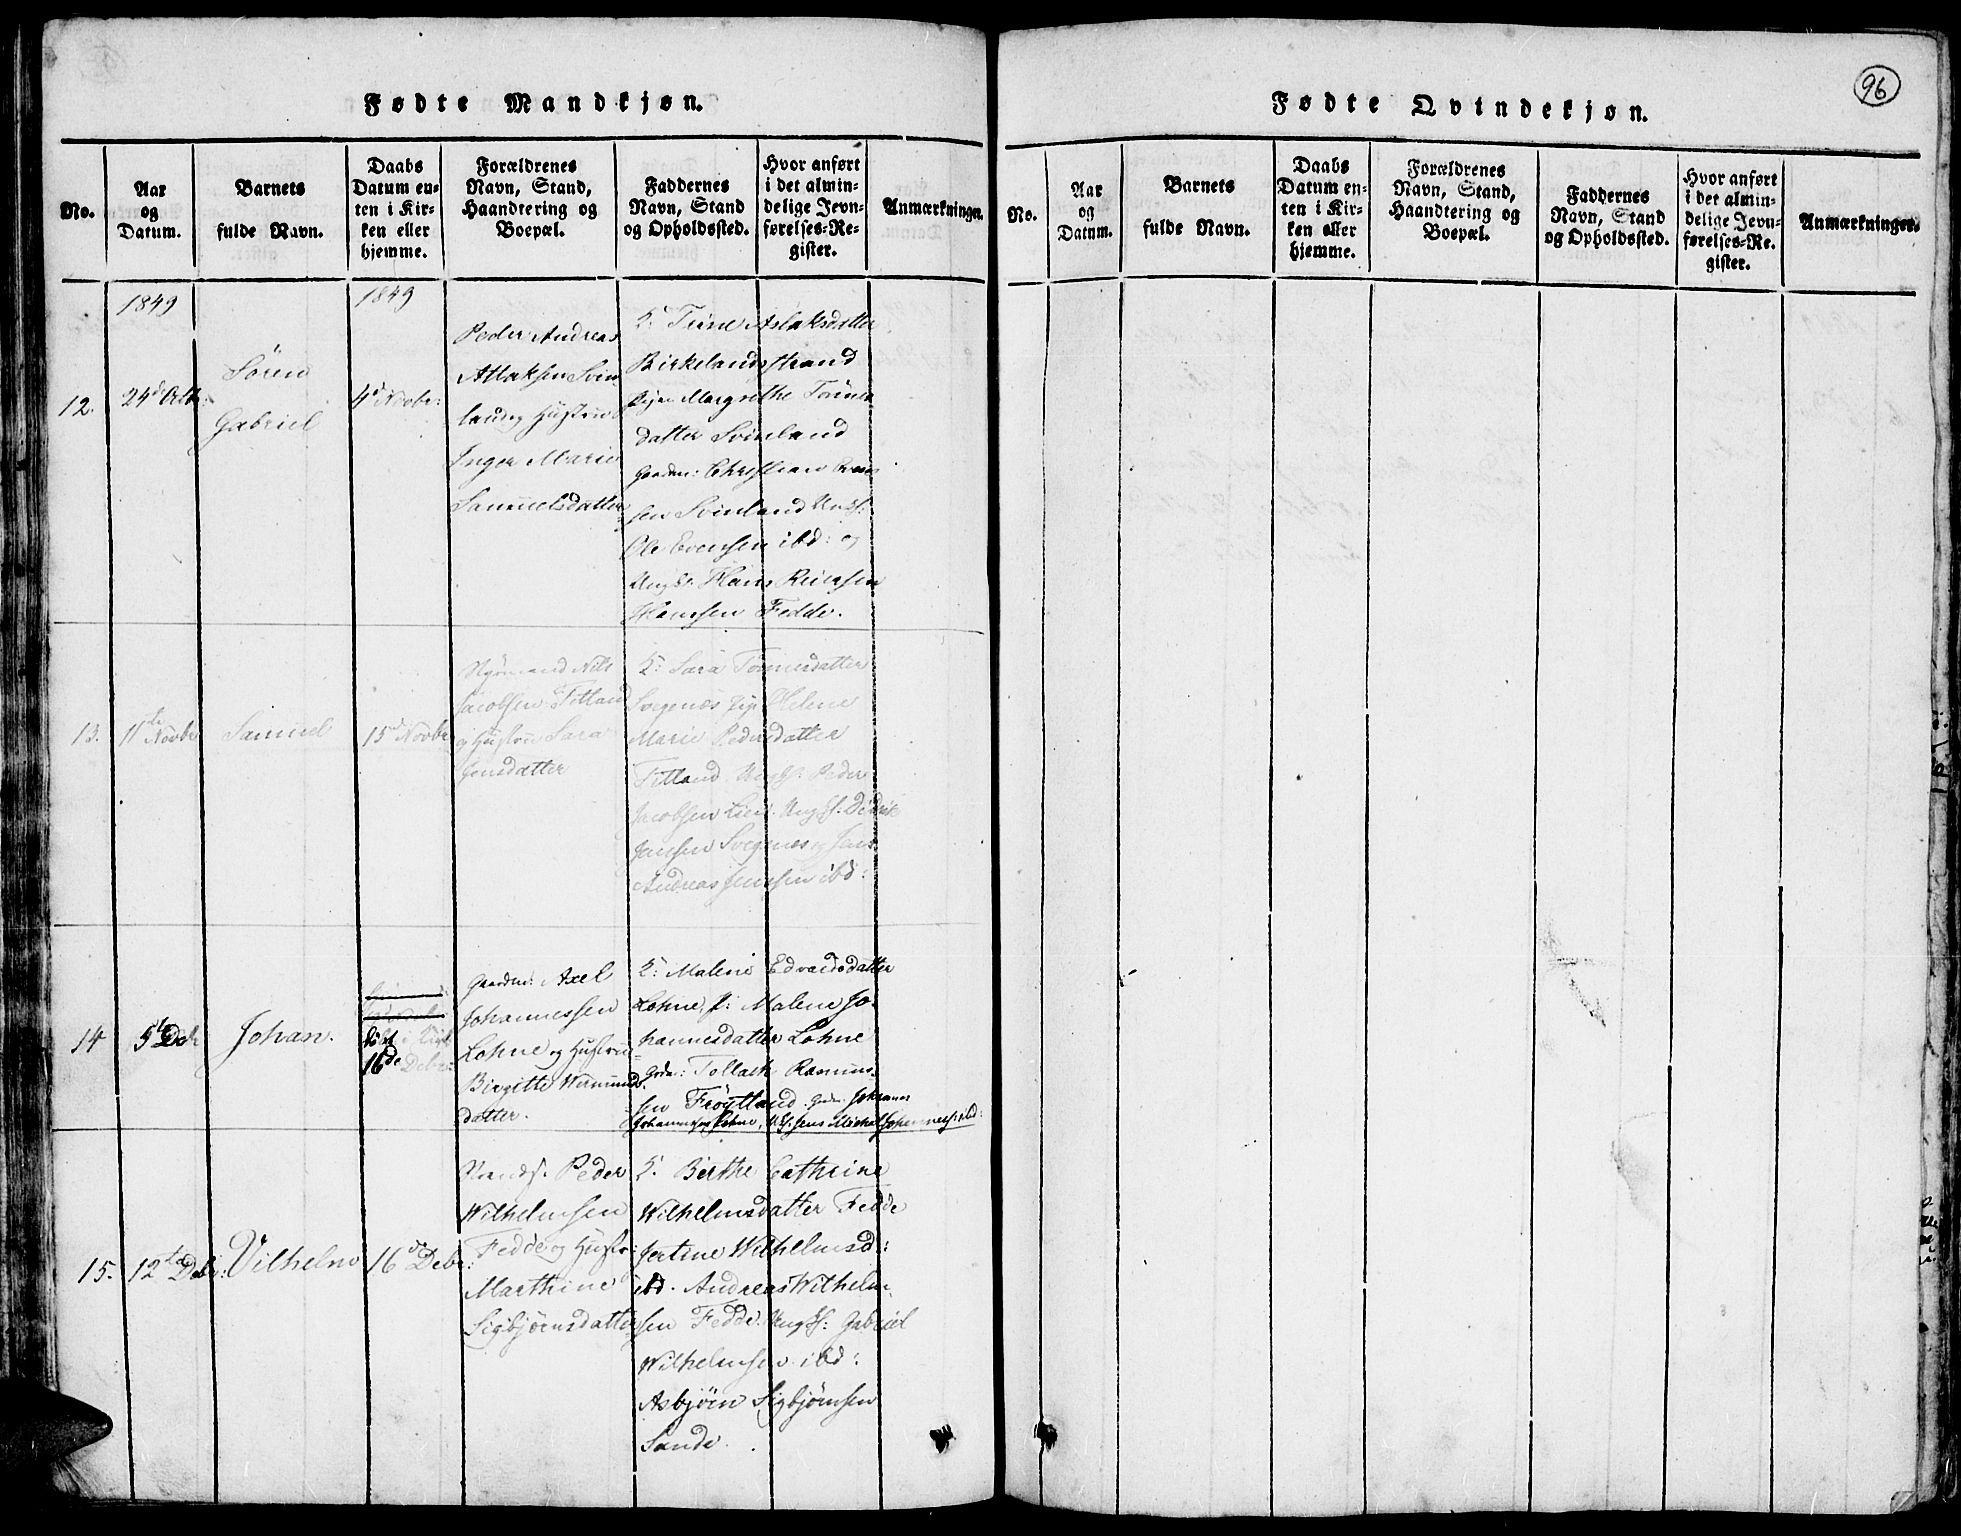 96
Fødte Mandkjøn.
No.
Aar
og
Datum.
Barnets
fulde Navn.
Daabs
Datum en-
ten i Kir-
ken eller
hjemme.
Forældrenes
Navn, Stand,
Haandtering og
Boepæl.
Faddernes
Navn, Stand
og Opholdssted.
Hvor anført
i det almin-
delige Jevn-
førelses-Re-
gister.
Anmærkninger.
1849
1849
12.
24d Octbr:
Søren
Gabriel
4d Novbr:
Peder Andreas
Atlaksen Svin
land og Hustrue
Inger Marie
Samuelsdatter
K: Tine Aslaksdatter
Birkelandsstrand
Pige Margrethe Tønnes
datter Svinland
Gaardm: Christian Even
sen Svinland Ungk:
Ole Evensen ibd: og
Ungk: Hans
Hansen Fedde.
13.
11te Novbr
Samuel
15d Novbr
Nils
Jacobsen Fitland
og Hustru Sara
Jonsdatter
K: Sara Tønnesdatter
Svegenæs Pige Helene
Marie Pedersdatter
Fitland Ungk: Peder
Jacobsen Lien. Ungk: Didrik
Jensen Svegenæs og Jens
Andreas Jensen ibd:
14
5te Decbr
Johan.
døbt i Kirk
16de Debr:
Gaardm: Axel
Johannessen
Lohne og Hustrue
Birgitte Wermunds
datter.
K: Malene Edvardsdatter
Lohne, P: Malene Jo-
hannesdatter Lohne
Grdm: Tollack Rasmus-
sen Frøytland. Grdm: Johannes
Johannessen Lohne, U.K: Jens Michal Johanness: ibd:
15.
12te Debr:
Vilhelm
16d Debr:
Peder
Wilhelmsen
Fedde og Hustr:
Marthine
Sigbjørnsdatter
K. Berthe Cathrine
Wilhelmsdatter Fedde
Jertine Wilhelmsd:
ibd. Andreas Wilhelm-
sen Fedde. Ungk: Gabriel
Wilhelmsen ibd:
Asbjørn Sigbjørnsen
Sande.
Fødte Qvindekjøn.
No.
Aar
og
Datum.
Barnets
fulde Navn.
Daabs
Datum en-
ten i Kir-
ken eller
hjemme.
Forældrenes
Navn, Stand,
Haandtering og
Boepæl.
Faddernes
Navn, Stand
og Opholdssted.
Hvor anført
i det almin-
delige Jevn-
førelses-Re-
gister.
Anmærkninger.